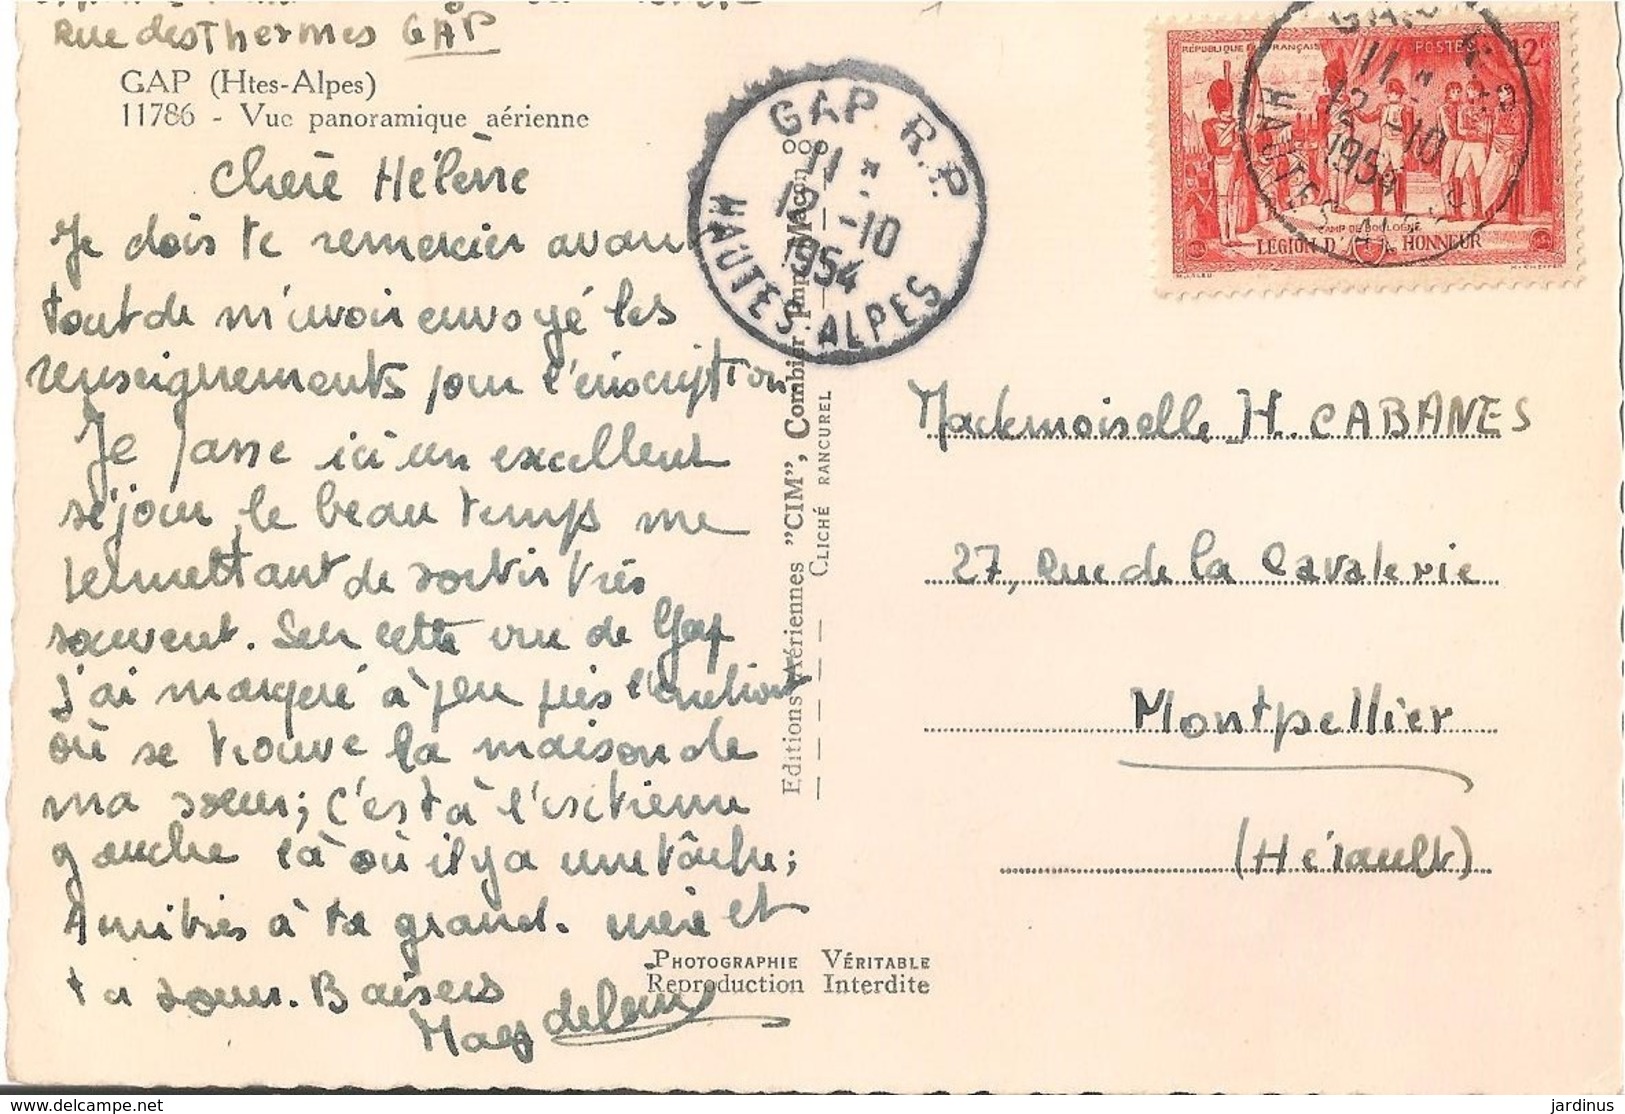 Rue des Thermes GAP
GAP (Htes-Alpes)
11786 - Vue panoramique aérienne
Chère Hélène
Je dois te remercier avant
tout de m'avoir envoyé les
renseignements pour l'inscription
Je passe ici un excellent
séjour, le beau temps me
permettant de sortir très
souvent. Sur cette vue de Gap
j'ai marqué à peu près l'endroit
où se trouve la maison de
ma sœur; c'est à l'extrême
gauche là où il y a une tâche;
Amitiés à ta grand-mère et
ta sœur. Baisers
Magdeleine
GAP R.P.
11 *
12 -10
1954
HAUTES-ALPES
Editions Aériennes "CIM", Combier Imp. Macon
CLICHÉ RANCUREL
PHOTOGRAPHIE VÉRITABLE
Reproduction Interdite
RÉPUBLIQUE FRANÇAISE
POSTES
12F
CAMP DE BOULOGNE
LÉGION D'HONNEUR
11 *
12 -10
1954
HAUTES-ALPES
Mademoiselle H. CABANES
27, Rue de la Cavalerie
Montpellier
(Hérault)
www.delcampe.net
jardinus